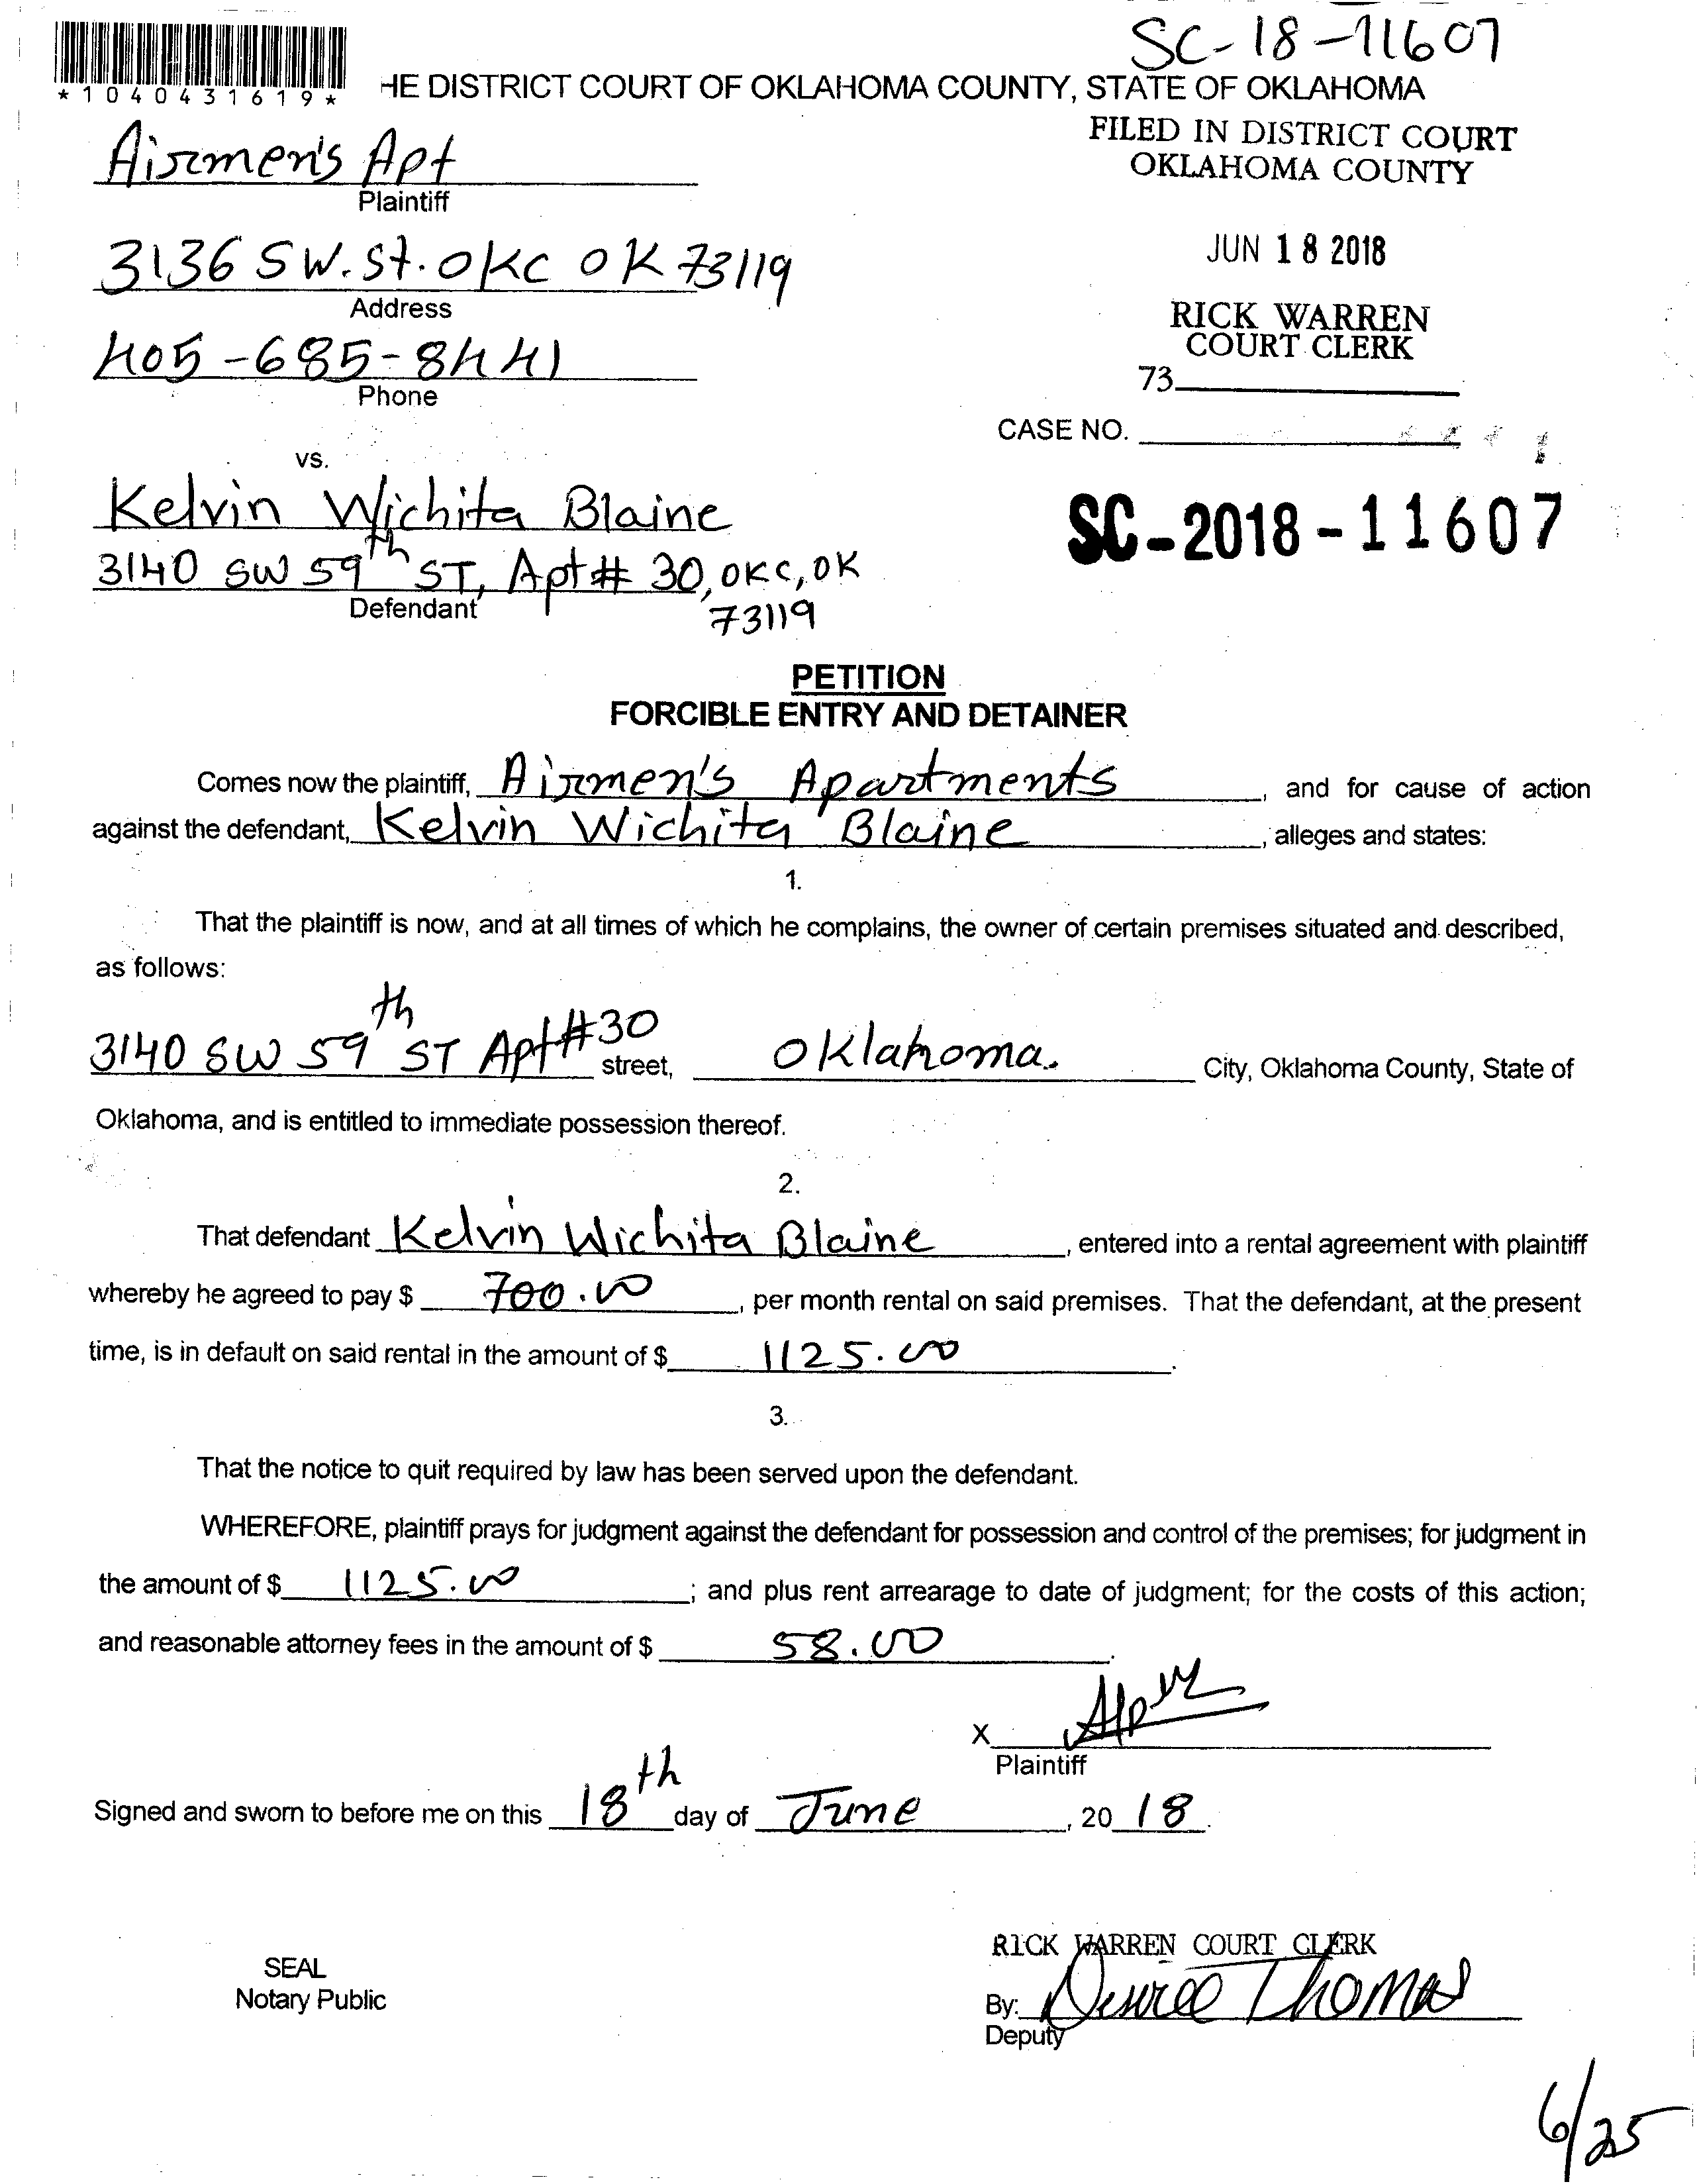 SC-18-11607
*1040431619*
HE DISTRICT COURT OF OKLAHOMA COUNTY, STATE OF OKLAHOMA
FILED IN DISTRICT COURT
OKLAHOMA COUNTY
Airmen's Apt
Plaintiff
3136 SW. St. OKC OK 73119
Address
JUN 18 2018
RICK WARREN
COURT CLERK
73
405-685-8441
Phone
CASE NO.
vs.
Kelvin Wichita Blaine
SC-2018-11607
3140 SW 59th ST, Apt# 30, OKC, OK
73119
Defendant
PETITION
FORCIBLE ENTRY AND DETAINER
Comes now the plaintiff, Airmen's Apartments, and for cause of action
against the defendant, Kelvin Wichita Blaine, alleges and states:
1.
That the plaintiff is now, and at all times of which he complains, the owner of certain premises situated and described,
as follows:
3140 SW 59th ST Apt#30 street, Oklahoma. City, Oklahoma County, State of
Oklahoma, and is entitled to immediate possession thereof.
2.
That defendant Kelvin Wichita Blaine, entered into a rental agreement with plaintiff
whereby he agreed to pay $ 700.00, per month rental on said premises. That the defendant, at the present
time, is in default on said rental in the amount of $ 1125.00.
3.
That the notice to quit required by law has been served upon the defendant.
WHEREFORE, plaintiff prays for judgment against the defendant for possession and control of the premises; for judgment in
the amount of $ 1125.00; and plus rent arrearage to date of judgment; for the costs of this action;
and reasonable attorney fees in the amount of $ 58.00.
X
Plaintiff
Signed and sworn to before me on this 18th day of June, 20 18.
SEAL
Notary Public
RICK WARREN COURT CLERK
By: Desiree Thomas
Deputy
6/25